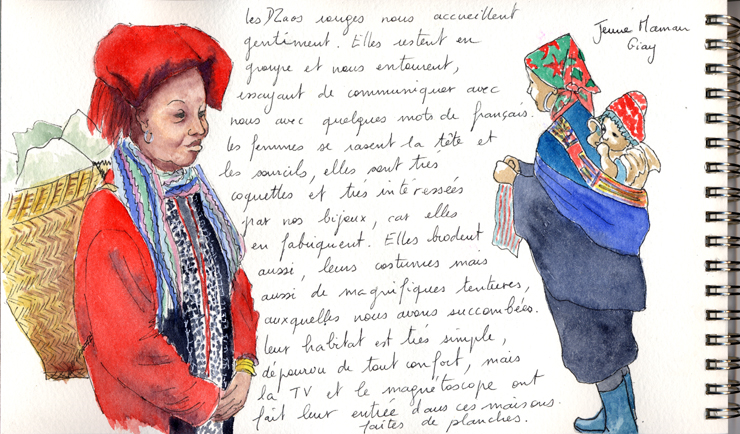 les DZaos rouges nous accueillent
gentiment. Elles restent en
groupe et nous entourent,
essayant de communiquer avec
nous avec quelques mots de français.
les femmes se rasent la tête et
les sourcils, elles sont très
coquettes et très intéressées
par nos bijoux, car elles
en fabriquent. Elles brodent
aussi, leurs costumes mais
aussi de magnifiques tentures,
auxquelles nous avons succombées.
leur habitat est très simple,
dépourvu de tout confort, mais
la TV et le magnétoscope ont
fait leur entrée dans ces maisons.
faites de planches.
Jeune Maman
Giay